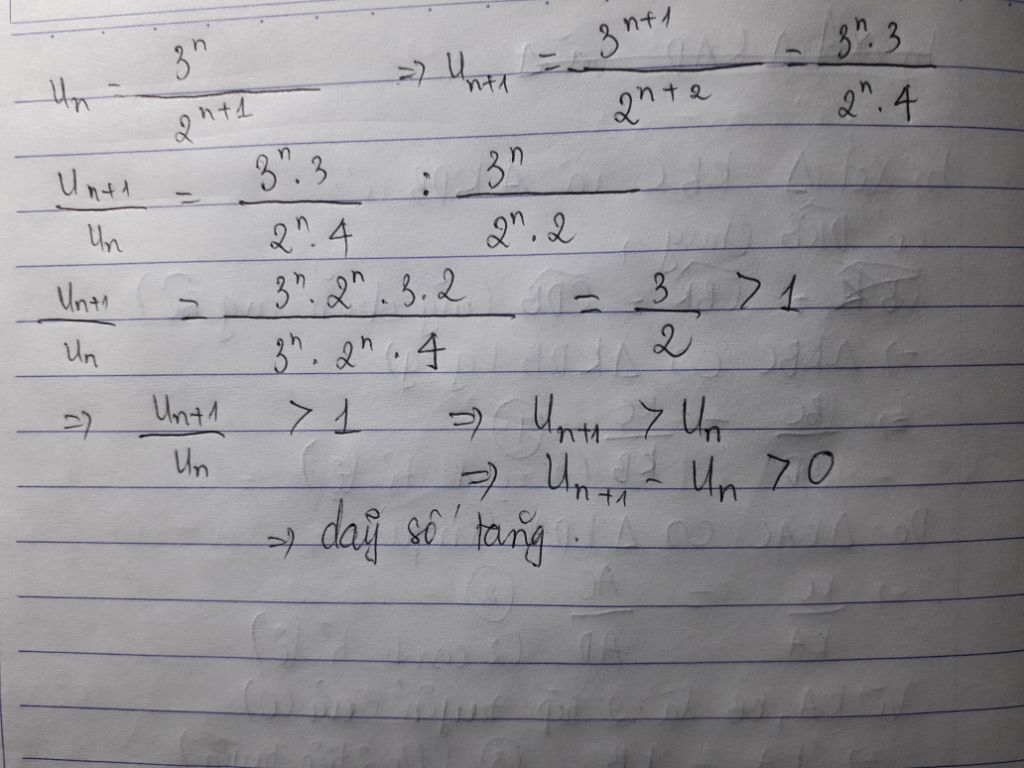 uₙ = 3ⁿ / 2ⁿ⁺¹ => uₙ₊₁ = 3ⁿ⁺¹ / 2ⁿ⁺² = 3ⁿ.3 / 2ⁿ.4
uₙ₊₁ / uₙ = 3ⁿ.3 / 2ⁿ.4 : 3ⁿ / 2ⁿ.2
uₙ₊₁ / uₙ = 3ⁿ.2ⁿ.3.2 / 3ⁿ.2ⁿ.4 = 3 / 2 > 1
=> uₙ₊₁ / uₙ > 1 => uₙ₊₁ > uₙ
=> uₙ₊₁ - uₙ > 0
=> dãy số tăng.